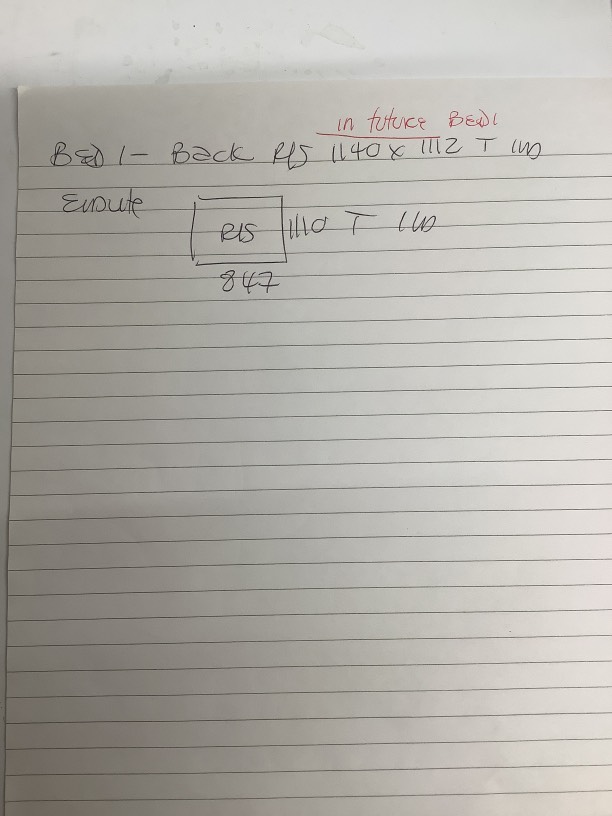 in future BED1
BED 1 - Back R/S 1140 x 1112 T
Ensuite
R/S 1110 T
847